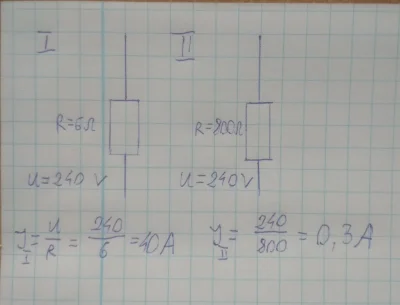 I II
R=6Ω R=800Ω
U=240 V U=240V
I_I = U/R = 240/6 = 40A I_II = 240/800 = 0,3A